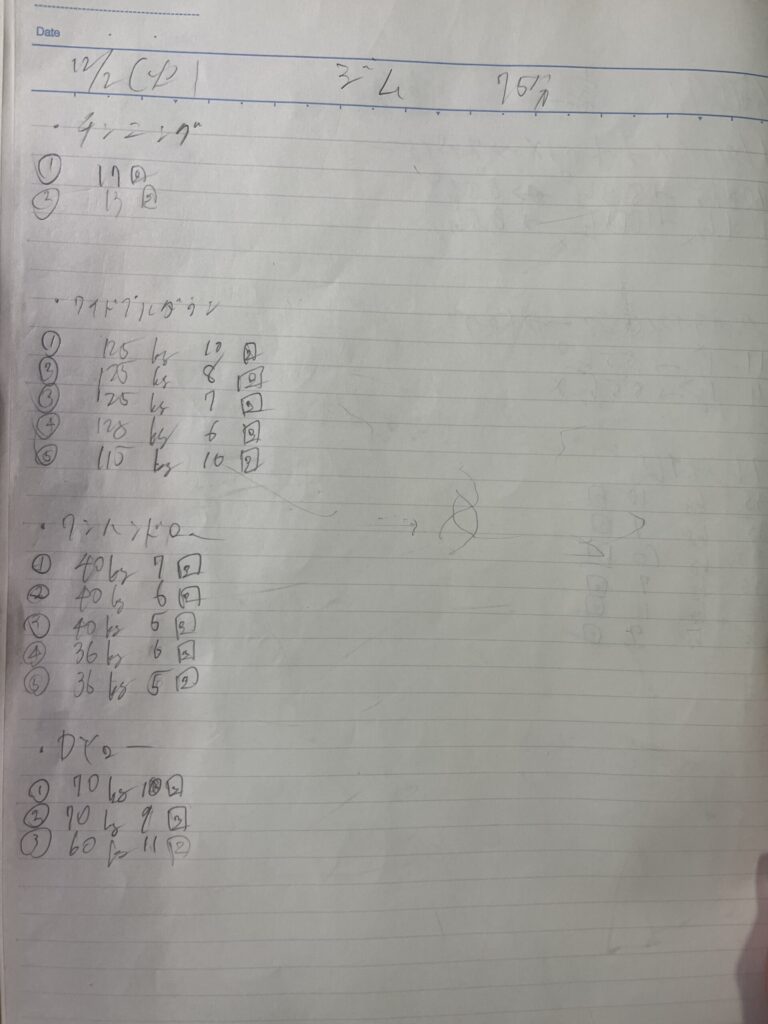 Date
12/2 (火) ジム 75分
・チンニング
① 17回
② 13回
・ワイドプルダウン
① 125 kg 10 回
② 125 kg 8 回
③ 125 kg 7 回
④ 125 kg 6 回
⑤ 115 kg 10 回
・ワンハンドロー
① 40kg 7 回
② 40kg 6 回
③ 40kg 5 回
④ 36kg 6 回
⑤ 36kg 5 回
・DYロー
① 70kg 10回
② 70kg 9 回
③ 60kg 11 回